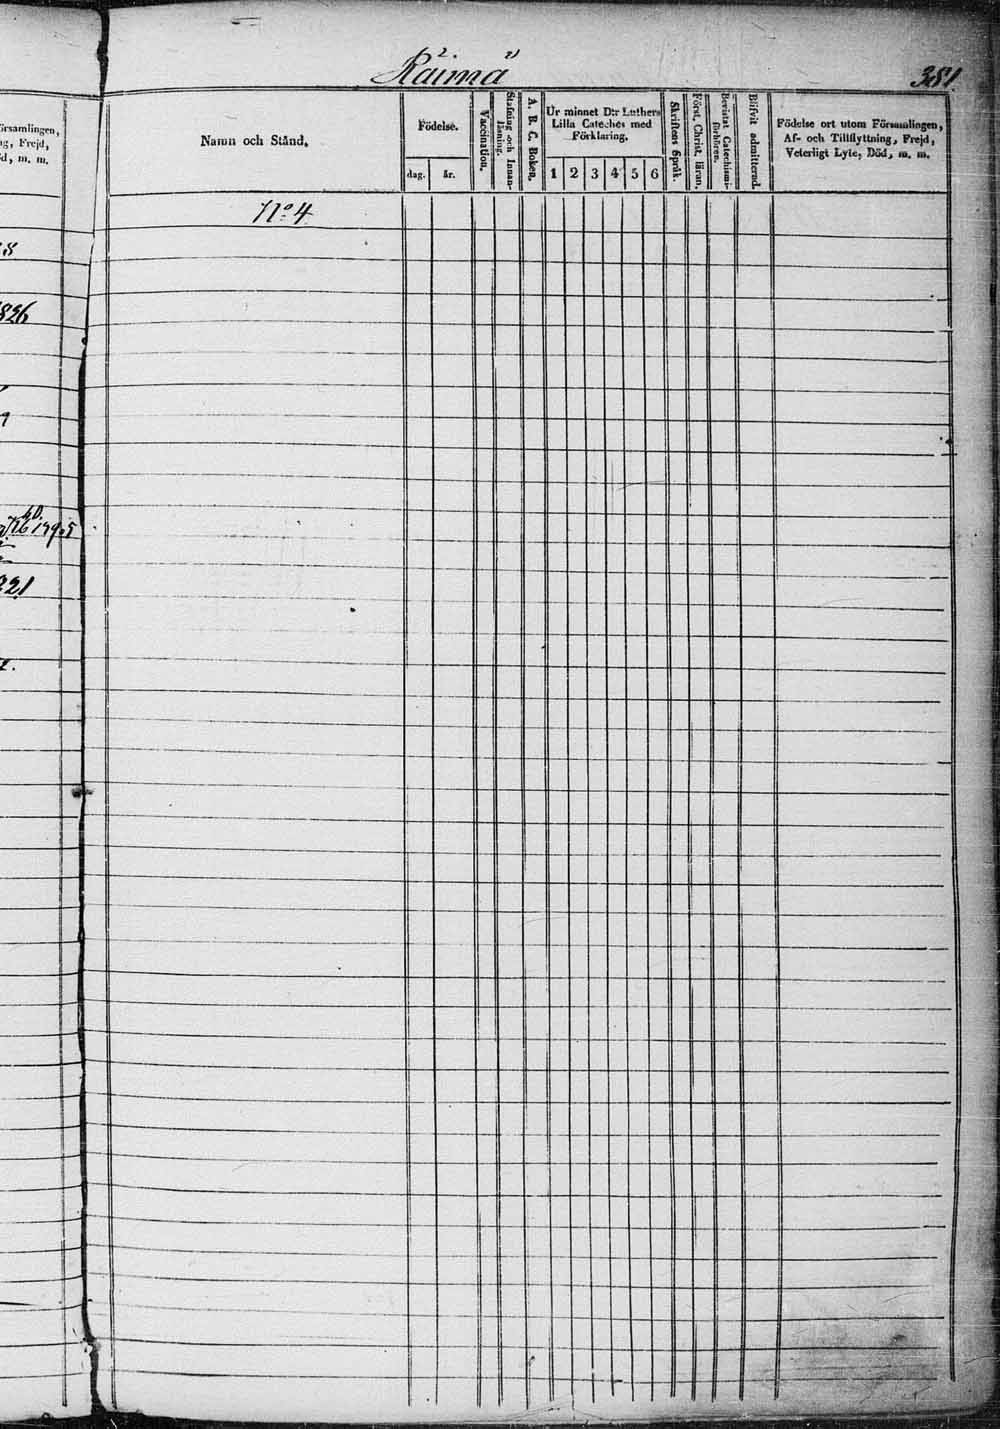 Räimä
381.
örsamlingen,
ng, Frejd,
öd, m. m.
Namn och Stånd.
Födelse.
dag. år.
Vaccination.
Stafning och Innan-
läsning.
A. B. C. Boken.
Ur minnet D:r Luthers
Lilla Cateches med
Förklaring.
1 2 3 4 5 6
Skriftens Språk.
Först. Christ. läran.
Bevistat Catechismi-
förhören.
Blifvit admitterad.
Födelse ort utom Församlingen,
Af- och Tillflyttning, Frejd,
Veterligt Lyte, Död, m. m.
N:o 4
826
821